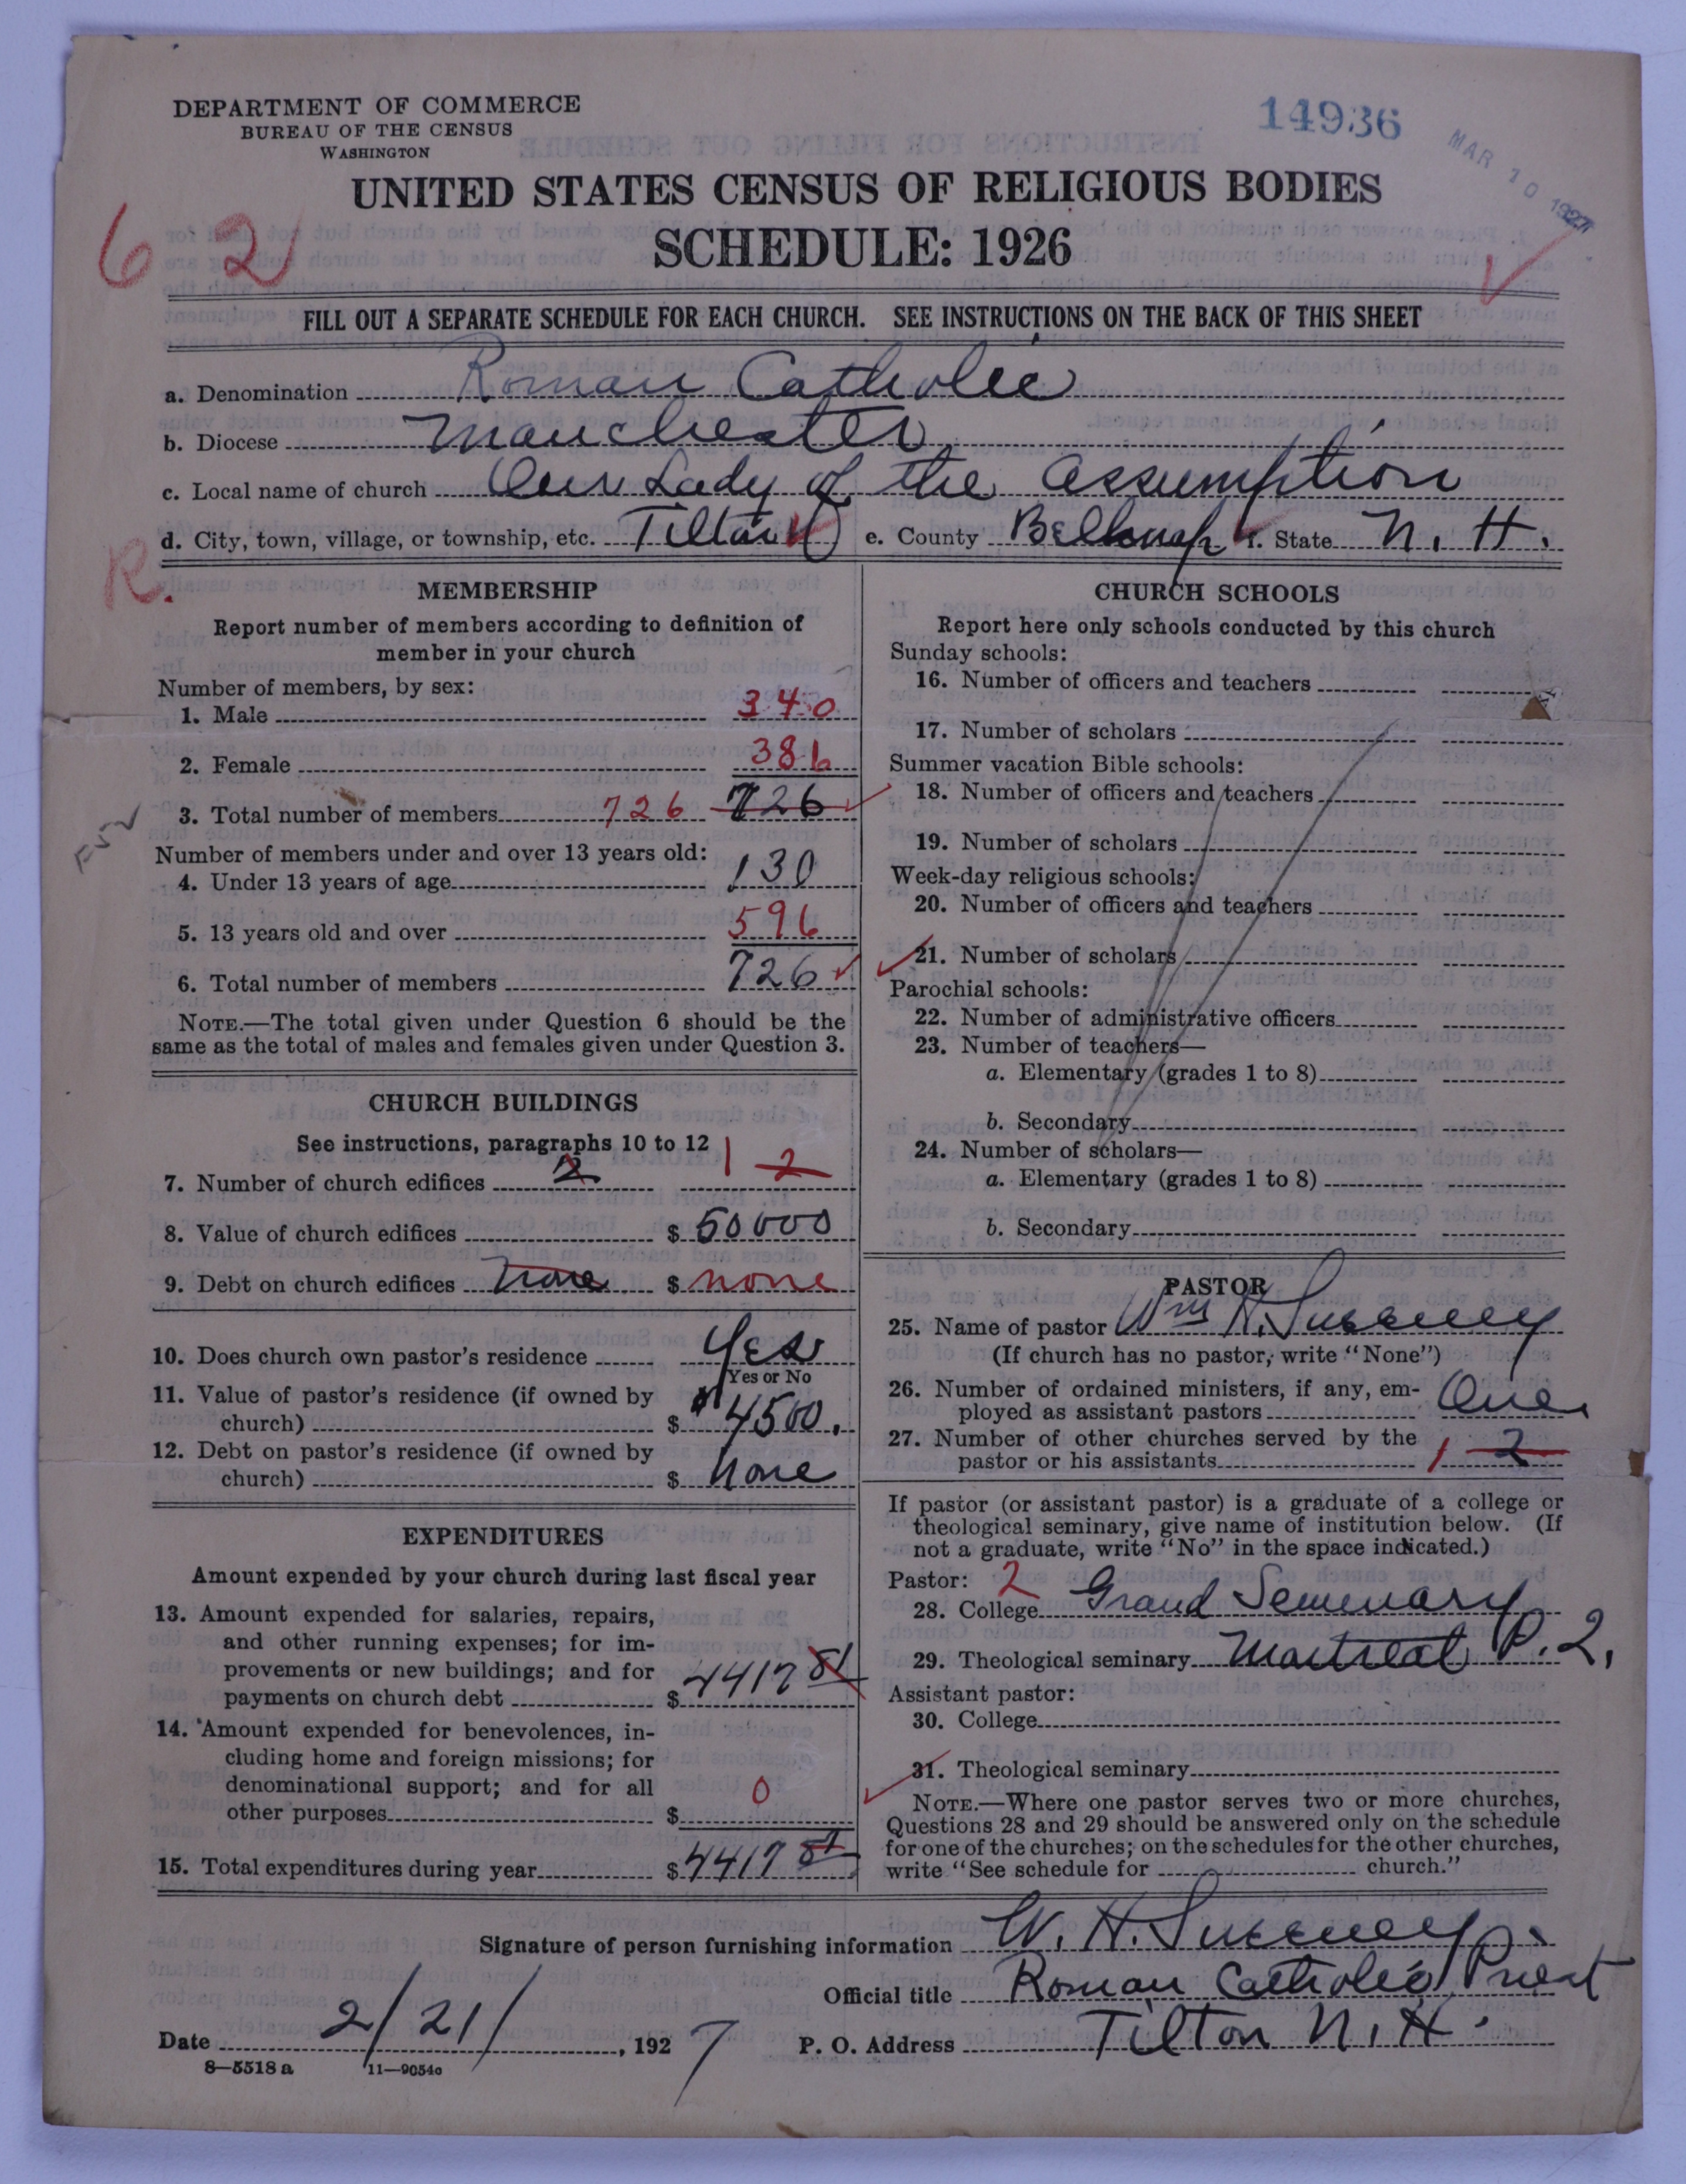 DEPARTMENT OF COMMERCE
BUREAU OF THE CENSUS
WASHINGTON
14936
MAR 10 1927
UNITED STATES CENSUS OF RELIGIOUS BODIES
62
SCHEDULE: 1926
FILL OUT A SEPARATE SCHEDULE FOR EACH CHURCH. SEE INSTRUCTIONS ON THE BACK OF THIS SHEET
a. Denomination Roman Catholic
b. Diocese Manchester
c. Local name of church Our Lady of the Assumption
d. City, town, village, or township, etc. Tilton e. County Belknap f. State N. H.
R.
MEMBERSHIP
Report number of members according to definition of
member in your church
Number of members, by sex:
1. Male 340
2. Female 386
3. Total number of members 726 726
Number of members under and over 13 years old:
4. Under 13 years of age 130
5. 13 years old and over 596
6. Total number of members 726
NOTE.—The total given under Question 6 should be the
same as the total of males and females given under Question 3.
CHURCH BUILDINGS
See instructions, paragraphs 10 to 12
7. Number of church edifices 2 1 2
8. Value of church edifices $ 50000
9. Debt on church edifices none $ none
10. Does church own pastor's residence Yes
Yes or No
11. Value of pastor's residence (if owned by
church) $ 4500.
12. Debt on pastor's residence (if owned by
church) $ None
EXPENDITURES
Amount expended by your church during last fiscal year
13. Amount expended for salaries, repairs,
and other running expenses; for im-
provements or new buildings; and for
payments on church debt $ 4417 81
14. Amount expended for benevolences, in-
cluding home and foreign missions; for
denominational support; and for all
other purposes $ 0
15. Total expenditures during year $ 4417 81
CHURCH SCHOOLS
Report here only schools conducted by this church
Sunday schools:
16. Number of officers and teachers
17. Number of scholars
Summer vacation Bible schools:
18. Number of officers and teachers
19. Number of scholars
Week-day religious schools:
20. Number of officers and teachers
21. Number of scholars
Parochial schools:
22. Number of administrative officers
23. Number of teachers—
a. Elementary (grades 1 to 8)
b. Secondary
24. Number of scholars—
a. Elementary (grades 1 to 8)
b. Secondary
PASTOR
25. Name of pastor Wm H. Sweeney
(If church has no pastor, write "None")
26. Number of ordained ministers, if any, em-
ployed as assistant pastors One
27. Number of other churches served by the
pastor or his assistants 1 2
If pastor (or assistant pastor) is a graduate of a college or
theological seminary, give name of institution below. (If
not a graduate, write "No" in the space indicated.)
Pastor: 2
28. College Grand Seminary
29. Theological seminary Montreal P. Q.
Assistant pastor:
30. College
31. Theological seminary
NOTE.—Where one pastor serves two or more churches,
Questions 28 and 29 should be answered only on the schedule
for one of the churches; on the schedules for the other churches,
write "See schedule for church."
Signature of person furnishing information W. H. Sweeney
Official title Roman Catholic Priest
Date 2/21/, 1927 P. O. Address Tilton N. H.
8—5518 a 11—9054c